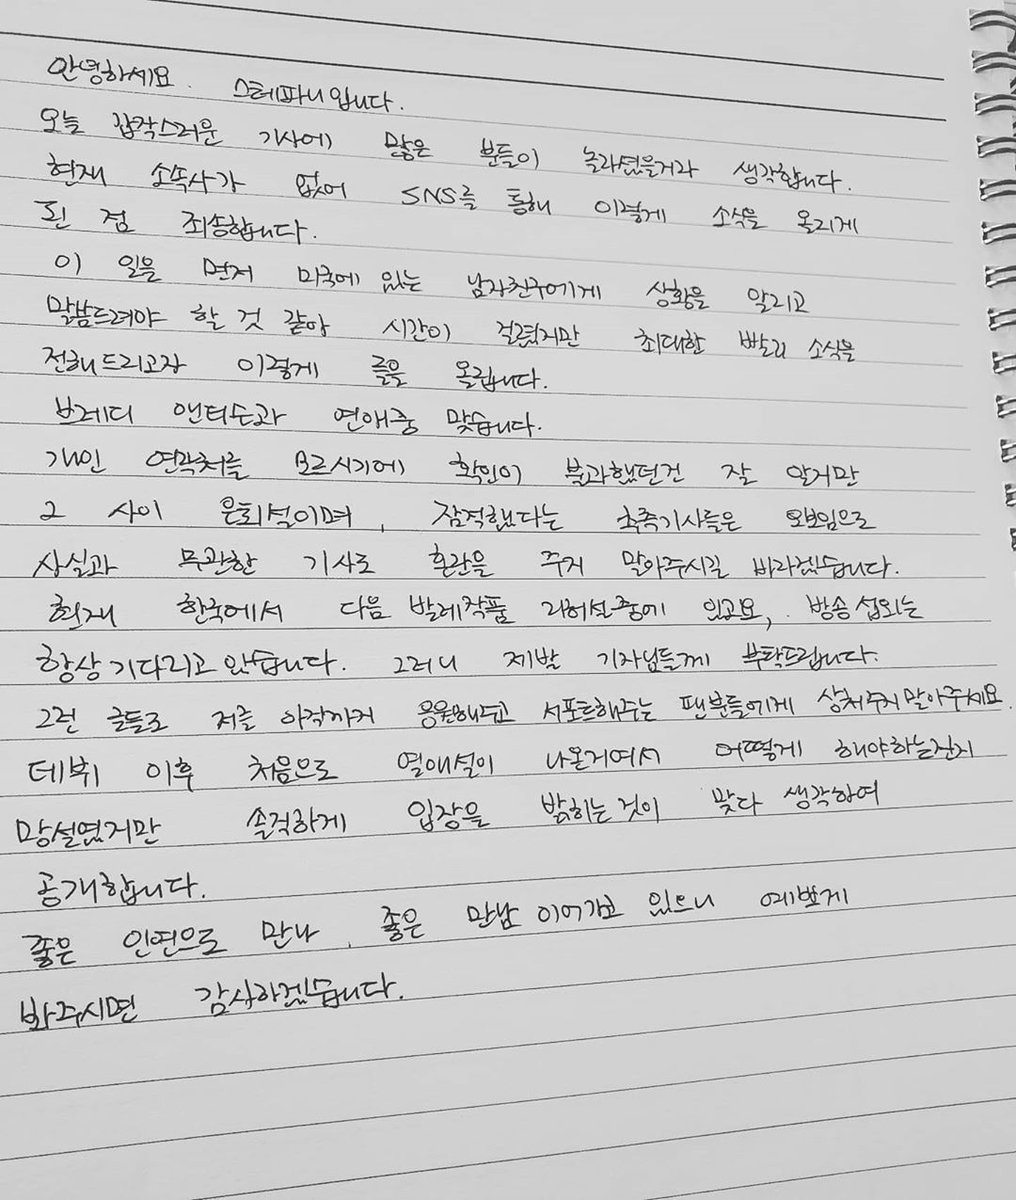 안녕하세요. 스테파니입니다.
오늘 갑작스러운 기사에 많은 분들이 놀라셨을거라 생각합니다.
현재 소속사가 없어 SNS를 통해 이렇게 소식을 올리게
된 점 죄송합니다.
이 일을 먼저 미국에 있는 남자친구에게 상황을 알리고
말씀드려야 할 것 같아 시간이 걸렸지만 최대한 빨리 소식을
전해드리고자 이렇게 글을 올립니다.
브레디 앤더슨과 연애중 맞습니다.
개인 연락처를 모르시기에 확인이 불과했던건 잘 알지만
그 사이 은퇴설이며, 잠적했다는 추측기사들은 오보임으로
사실과 무관한 기사로 혼란을 주지 말아주시길 바라겠습니다.
현재 한국에서 다음 발레작품 리허설중에 있고요, 방송 섭외는
항상 기다리고 있습니다. 그러니 제발 기자님들께 부탁드립니다.
그런 글들로 저를 아직까지 응원해주고 서포트해주는 팬분들에게 상처주지말아주세요.
데뷔 이후 처음으로 열애설이 나온거여서 어떻게 해야하는건지
망설였지만 솔직하게 입장을 밝히는 것이 맞다 생각하여
공개합니다.
좋은 인연으로 만나, 좋은 만남 이어가고 있으니 예쁘게
봐주시면 감사하겠습니다.